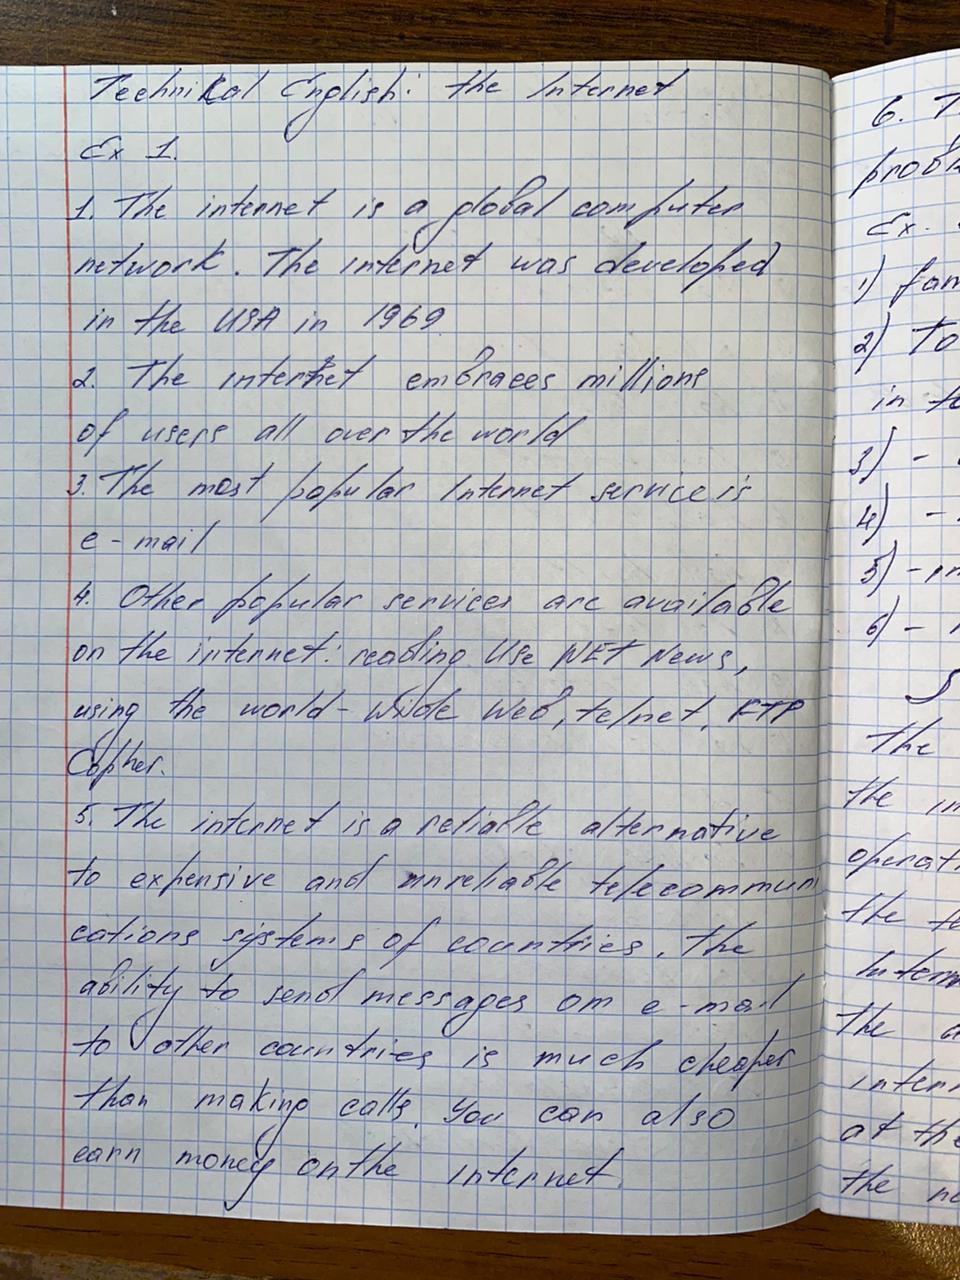 Technikal English: the Internet
Ex 1.
1. The internet is a global computer
network. The internet was developed
in the USA in 1969
2. The internet embraees millions
of users all over the world
3. The most popular Internet service is
e-mail
4. Other popular services are available
on the internet: reading Use NET News,
using the world-Wide Web, telnet, FTP
Copher.
5. The internet is a reliable alternative
to expensive and unreliable telecommuni
cations systems of countries. The
ability to send messages on e-mail
to other countries is much cheaper
than making calls. You can also
earn money on the internet.
6. T
prob
Ex.
1) fam
2) To
in te
3) -
4) -
5) -
6) -
the
the in
operat
the te
Intern
the a
intern
at the
the ne